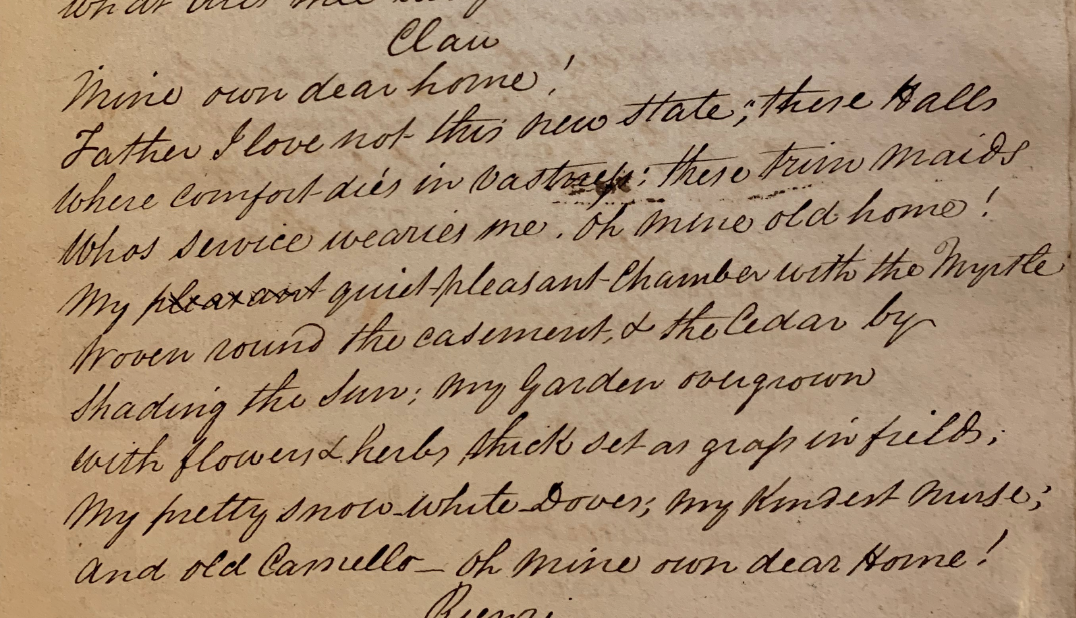 what
Clau
Mine own dear home!
Father I love not this new state; these Halls
Where comfort dies in vastness: these trim Maids
Whos service wearies me. Oh Mine old home!
My pleasant quiet pleasant Chamber with the Myrtle
Woven round the casement, & the Cedar by
Shading the Sun; My Garden overgrown
With flowers & herbs, thick set as grass in fields;
My pretty snow-white Doves; my Kindest Nurse;
And old Camello — Oh Mine own dear Home!
Rienzi